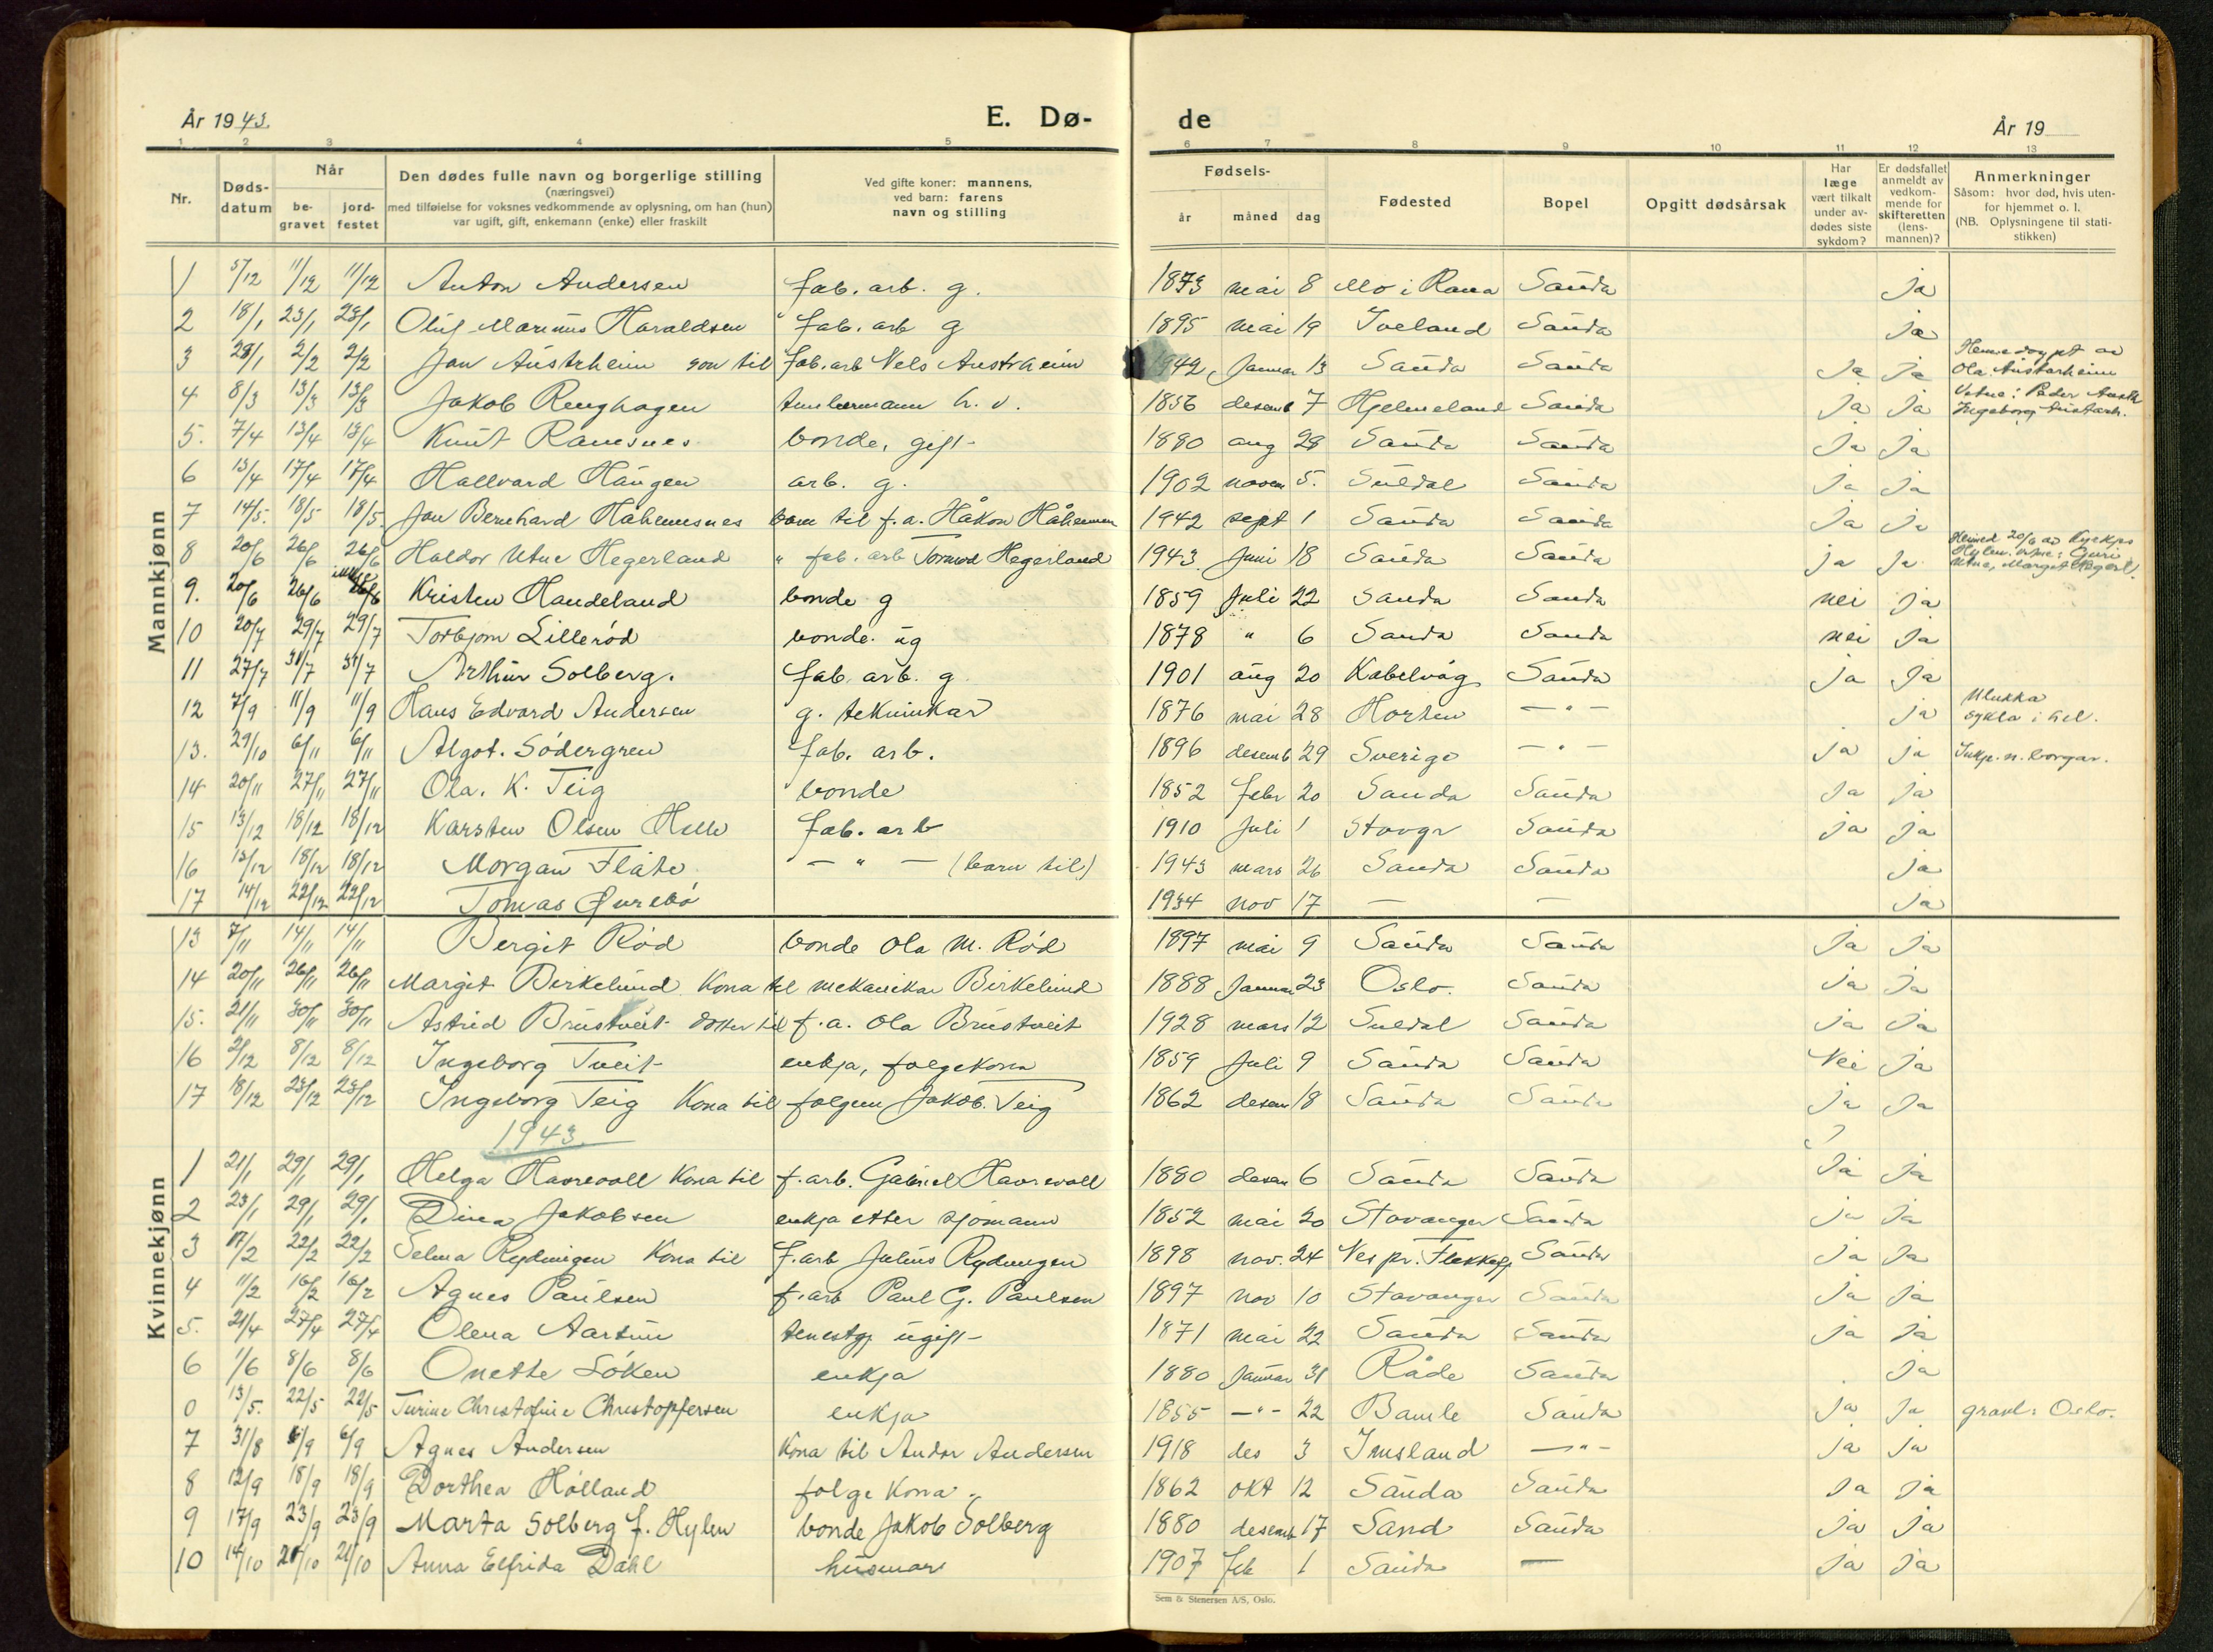 År 1943. E. Dø- de År 19
1 2 3 4 5 6 7 8 9 10 11 12 13
Nr. Døds-datum Når be-gravet jord-festet Den dødes fulle navn og borgerlige stilling (næringsvei) med tilføielse for voksnes vedkommende av oplysning, om han (hun) var ugift, gift, enkemann (enke) eller fraskilt Ved gifte koner: mannens, ved barn: farens navn og stilling Fødsels- år måned dag Fødested Bopel Opgitt dødsårsak Har læge vært tilkalt under av-dødes siste sykdom? Er dødsfallet anmeldt av vedkom-mende for skifteretten (lens-mannen)? Anmerkninger Såsom: hvor død, hvis uten-for hjemmet o. l. (NB. Oplysningene til stati-stikken)
Mannkjønn
1 5/12 11/12 11/12 Anton Andersen fab. arb. g. 1873 mai 8 Mo i Rana Sauda ja
2 18/1 23/1 23/1 Oluf Marinus Haraldsen fab. arb g 1895 mai 19 Iveland Sauda ja
3 28/1 2/2 2/2 Jan Austrheim son til fab. arb Nels Austrheim 1942 Januar 13 Sauda Sauda Ja Ja Heimedøypt av Ola Austarheim
4 8/3 13/3 13/3 Jakob Renghagen tømmermann 1836 desemb 7 Hjelmeland Sauda Ja Ja Vitne: Peder Austh Ingeborg Austarh.
5. 7/4 13/4 13/4 Knut Ramsnes bonde, gift 1880 aug 28 Sauda Sauda Ja Ja
6 13/4 17/4 17/4 Hallvard Haugen arb. g. 1902 novem 5. Suldal Sauda Ja Ja
7 14/5. 18/5 18/5. Jan Bernhard Håheimsnes barn til f. a. Håkon 1942 sept 1 Sauda Sauda Ja Ja
8 20/6 26/6 26/6 Haldor Utne Hegerland " fab. arb Tormod Hegerland 1943 Juni 18 Sauda Sauda ja Ja Heimed 20/6 av Kyrkjes Hylen. vitne: Guri Utne, Margit Hegerl.
9. 20/6 26/6 26/6 Kristen Handeland bonde g 1859 Juli 22 Sauda Sauda nei Ja
10 20/7 29/7 29/7 Torbjørn Lillerød bonde. ug 1878 " 6 Sauda Sauda nei Ja
11 27/7 31/7 31/7 Arthur Solberg. fab. arb. g 1901 aug 20 Kabelvåg Sauda ja Ja
12 7/9 11/9 11/9 Hans Edvard Andersen g. teknikar 1876 mai 28 Horten - " - ja Ulukka sykla i hel.
13. 29/10 6/11 6/11 Algot. Södergren fab. arb. 1896 desemb 29 Sverige - " - Ja ja borgar.
14 20/11 27/11 27/11 Ola. K. Teig bonde 1852 febr 20 Sauda Sauda Ja Ja
15 13/12 18/12 18/12 Karsten Olsen Helle fab. arb 1910 Juli 1 Stavgr Sauda ja Ja
16 13/12 18/12 18/12 Morgan Flåte - " - (barn til) 1943 mars 26 Sauda Sauda Ja
17 14/12 22/12 22/12 Tomas Øurebø 1934 nov 17 — — Ja
Kvinnekjønn
13 7/11 14/11 14/11 Bergit Rød bonde Ola M. Rød 1897 mai 9 Sauda Sauda Ja Ja
14 20/11 26/11 26/11 Margit Birkelund Kona til mekanikar Birkelund 1888 Januar 23 Oslo. Sauda Ja Ja
15. 21/11 30/11 30/11 Astrid Brustveit dotter til f. a. Ola Brustveit 1928 mars 12 Suldal Sauda Ja Ja
16 2/12 8/12 8/12 Ingeborg Tveit enkja, folgekona 1859 Juli 9 Sauda Sauda Nei Ja
17 18/12 23/12 23/12 Ingeborg Teig Kona til folgem Jakob. Teig 1862 desem 18 Sauda Sauda Ja Ja
1943
1 21/1 29/1 29/1 Helga Havrevoll Kona til f. arb. Gabriel Havrevoll 1880 desem 6 Sauda Sauda Ja Ja
2 23/1 29/1 29/1 Dina Jakobsen enkja etter sjømann 1852 mai 20 Stavanger Sauda Ja Ja
3 17/2 22/2 22/2 Selma Rydningen Kona til f. arb Julius Rydningen 1898 nov. 24 Nes pr. Flekkefj Sauda Ja Ja
4 11/2 16/2 16/2 Agnes Paulsen f. arb Paul G. Paulsen 1897 nov 10 Stavanger Sauda Ja Ja
5. 21/4 27/4 27/4 Olena Aartun tenestgj ugift 1871 mai 22 Sauda Sauda Ja Ja
6 1/6 8/6 8/6 Onette Löken enkja 1880 Januar 31 Råde Sauda Ja
0 13/5. 22/5 22/5 Turine Christofine Christopfersen enkja 1855 - " - 22 Bamle Sauda Ja Ja gravl: Oslo.
7 31/8 6/9 6/9 Agnes Andersen Kona til Andor Andersen 1918 des 3 Imsland - " - Ja Ja
8 12/9 18/9 18/9 Dorthea Hålland folge Kona 1862 okt 12 Sauda Sauda Ja Ja
9 17/9 23/9 23/9 Marta Solberg f. Hylen bonde Jakob Solberg 1880 desemb 17 Sand Sauda Ja Ja
10 14/10 21/10 21/10 Anna Elfrida Dahl husmor 1907 Feb 1 Sauda — Ja Ja
Sem & Stenersen A/S, Oslo.